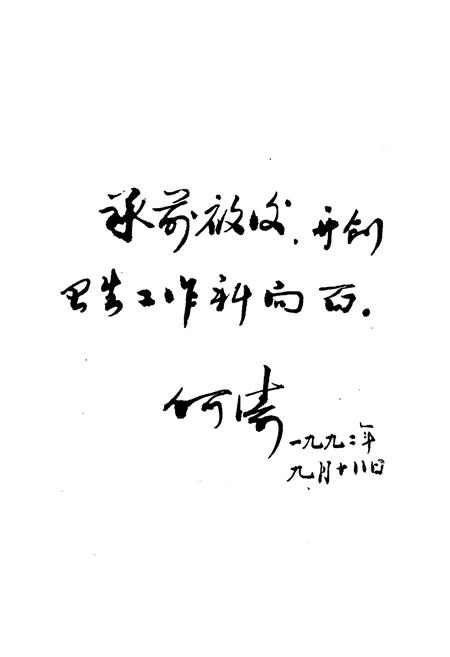 承前启后,开创
卫生工作新局面。
何涛
一九九二年
九月十八日